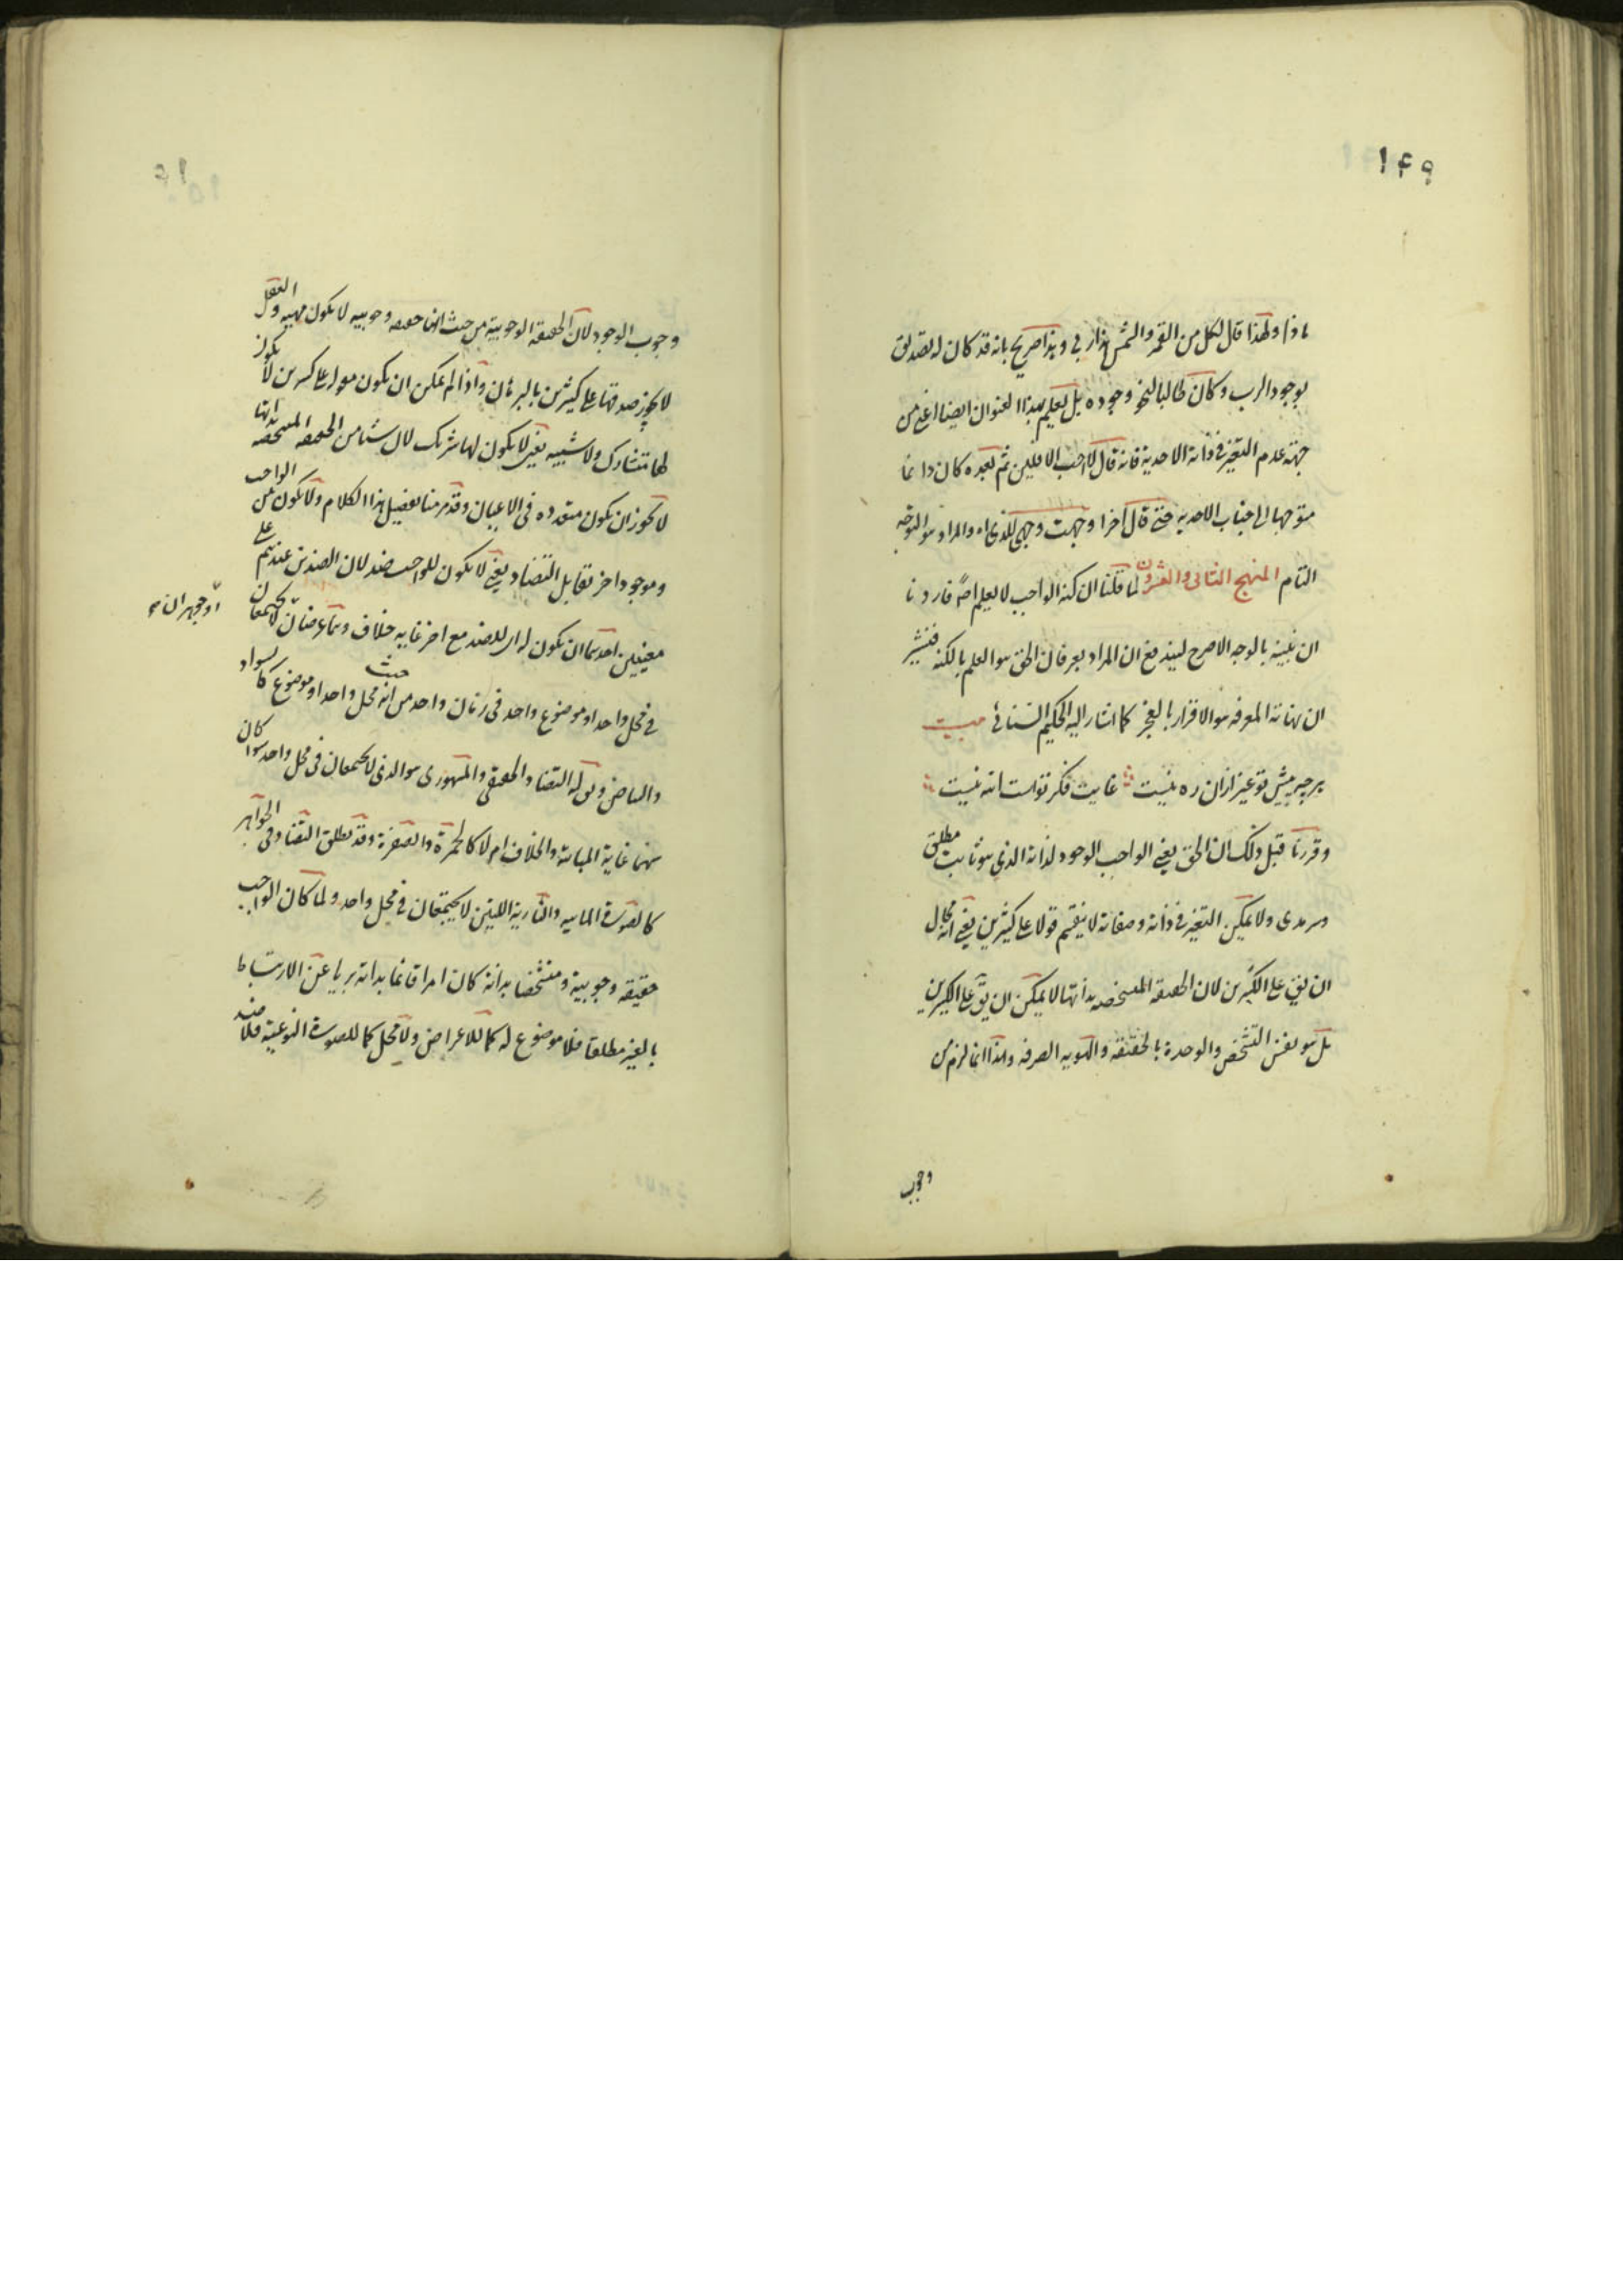 ۱۴۹
ماذا ولهذا قال لكل من القمر والشمس هذا ربى وهذا صريح بانه قد كان له تصديق
بوجود الرب وكان طالبا لنحو وجوده بل تعلم بهذا العنوان ايضا اعنى من
جهة عدم التغير فى ذاته الاحدية فانه قال لا احب الافلين ثم بعده كان دائما
متوجها الى جناب الاحديه حتى قال آخرا وجهت وجهى للذى اه والمراد هو التوجه
التام المنهج الثانى والعشرون لما قلنا ان كنه الواجب لا يعلم اصلا فاردنا
ان نبينه بالوجه الاصرح ليندفع ان المراد بعرفان الحق هو العلم بالكنه فنشير
ان نهاية المعرفه هو الاقرار بالعجز كما اشار اليه الحكيم السنائى بيت
هرچه پيش تو غير ازان ره نيست غايت فكر تو است الله نيست
وقررنا قبل ذلك ان الحق يعنى الواجب الوجود لذاته الذى هو ثابت مطلق
وسرمدى ولا يمكن التغير فى ذاته وصفاته لا ينقسم قولا على كثيرين يعنى انه محال
ان يق على الكثيرين لان الحقيقه المتشخصه بذاتها لا يمكن ان يق على الكثيرين
بل هو نفس التشخص والوحدة بالحقيقه والهويه الصرفه ولهذا انما لزم من
وجوب
وجوب الوجود لان الحقيقه الوجوبية من حيث انها حقيقه وجوبيه لا يكون مهيه والعقل
لا يجوز صدقها على كثيرين بالبرهان واذا لم يمكن ان يكون مقولا على كثيرين لا يكون
لها متشارك ولا شبيه يعنى لا يكون لها شريك لان شيئا من الحقيقه المتشخصه بذاتها
لا يجوز ان يكون متعدده فى الاعيان وقد مر منا تفصيل هذا الكلام ولا يكون بين الواجب
وموجود اخر تقابل التضاد يعنى لا يكون للواجب ضد لان الضدين عندهم على
معنيين احدهما ان يكون له اى للضد مع اخر غايه خلاف وهما عرضان لا يجتمعان
او جوهران
فى محل واحد او موضوع واحد فى زمان واحد من حيث انه محل واحد او موضوع كالسواد
والبياض ويق له التضاد الحقيقى والمشهورى هو الذى لا يجتمعان فى محل واحد سوا كان
بينهما غاية المباينة والخلاف ام لا كالحمرة والصفرة وقد يطلق التضاد فى الجواهر
كالصورة المائيه والنارية اللتين لا يجتمعان فى محل واحد ولما كان الواجب
حقيقه وجوبية ومتشخصا بذاته كان امرا قائما بذاته بريا عن الارتباط
بالغير مطلقا فلا موضوع له كما للاعراض ولا محل كما للصورة النوعية فلا ضد